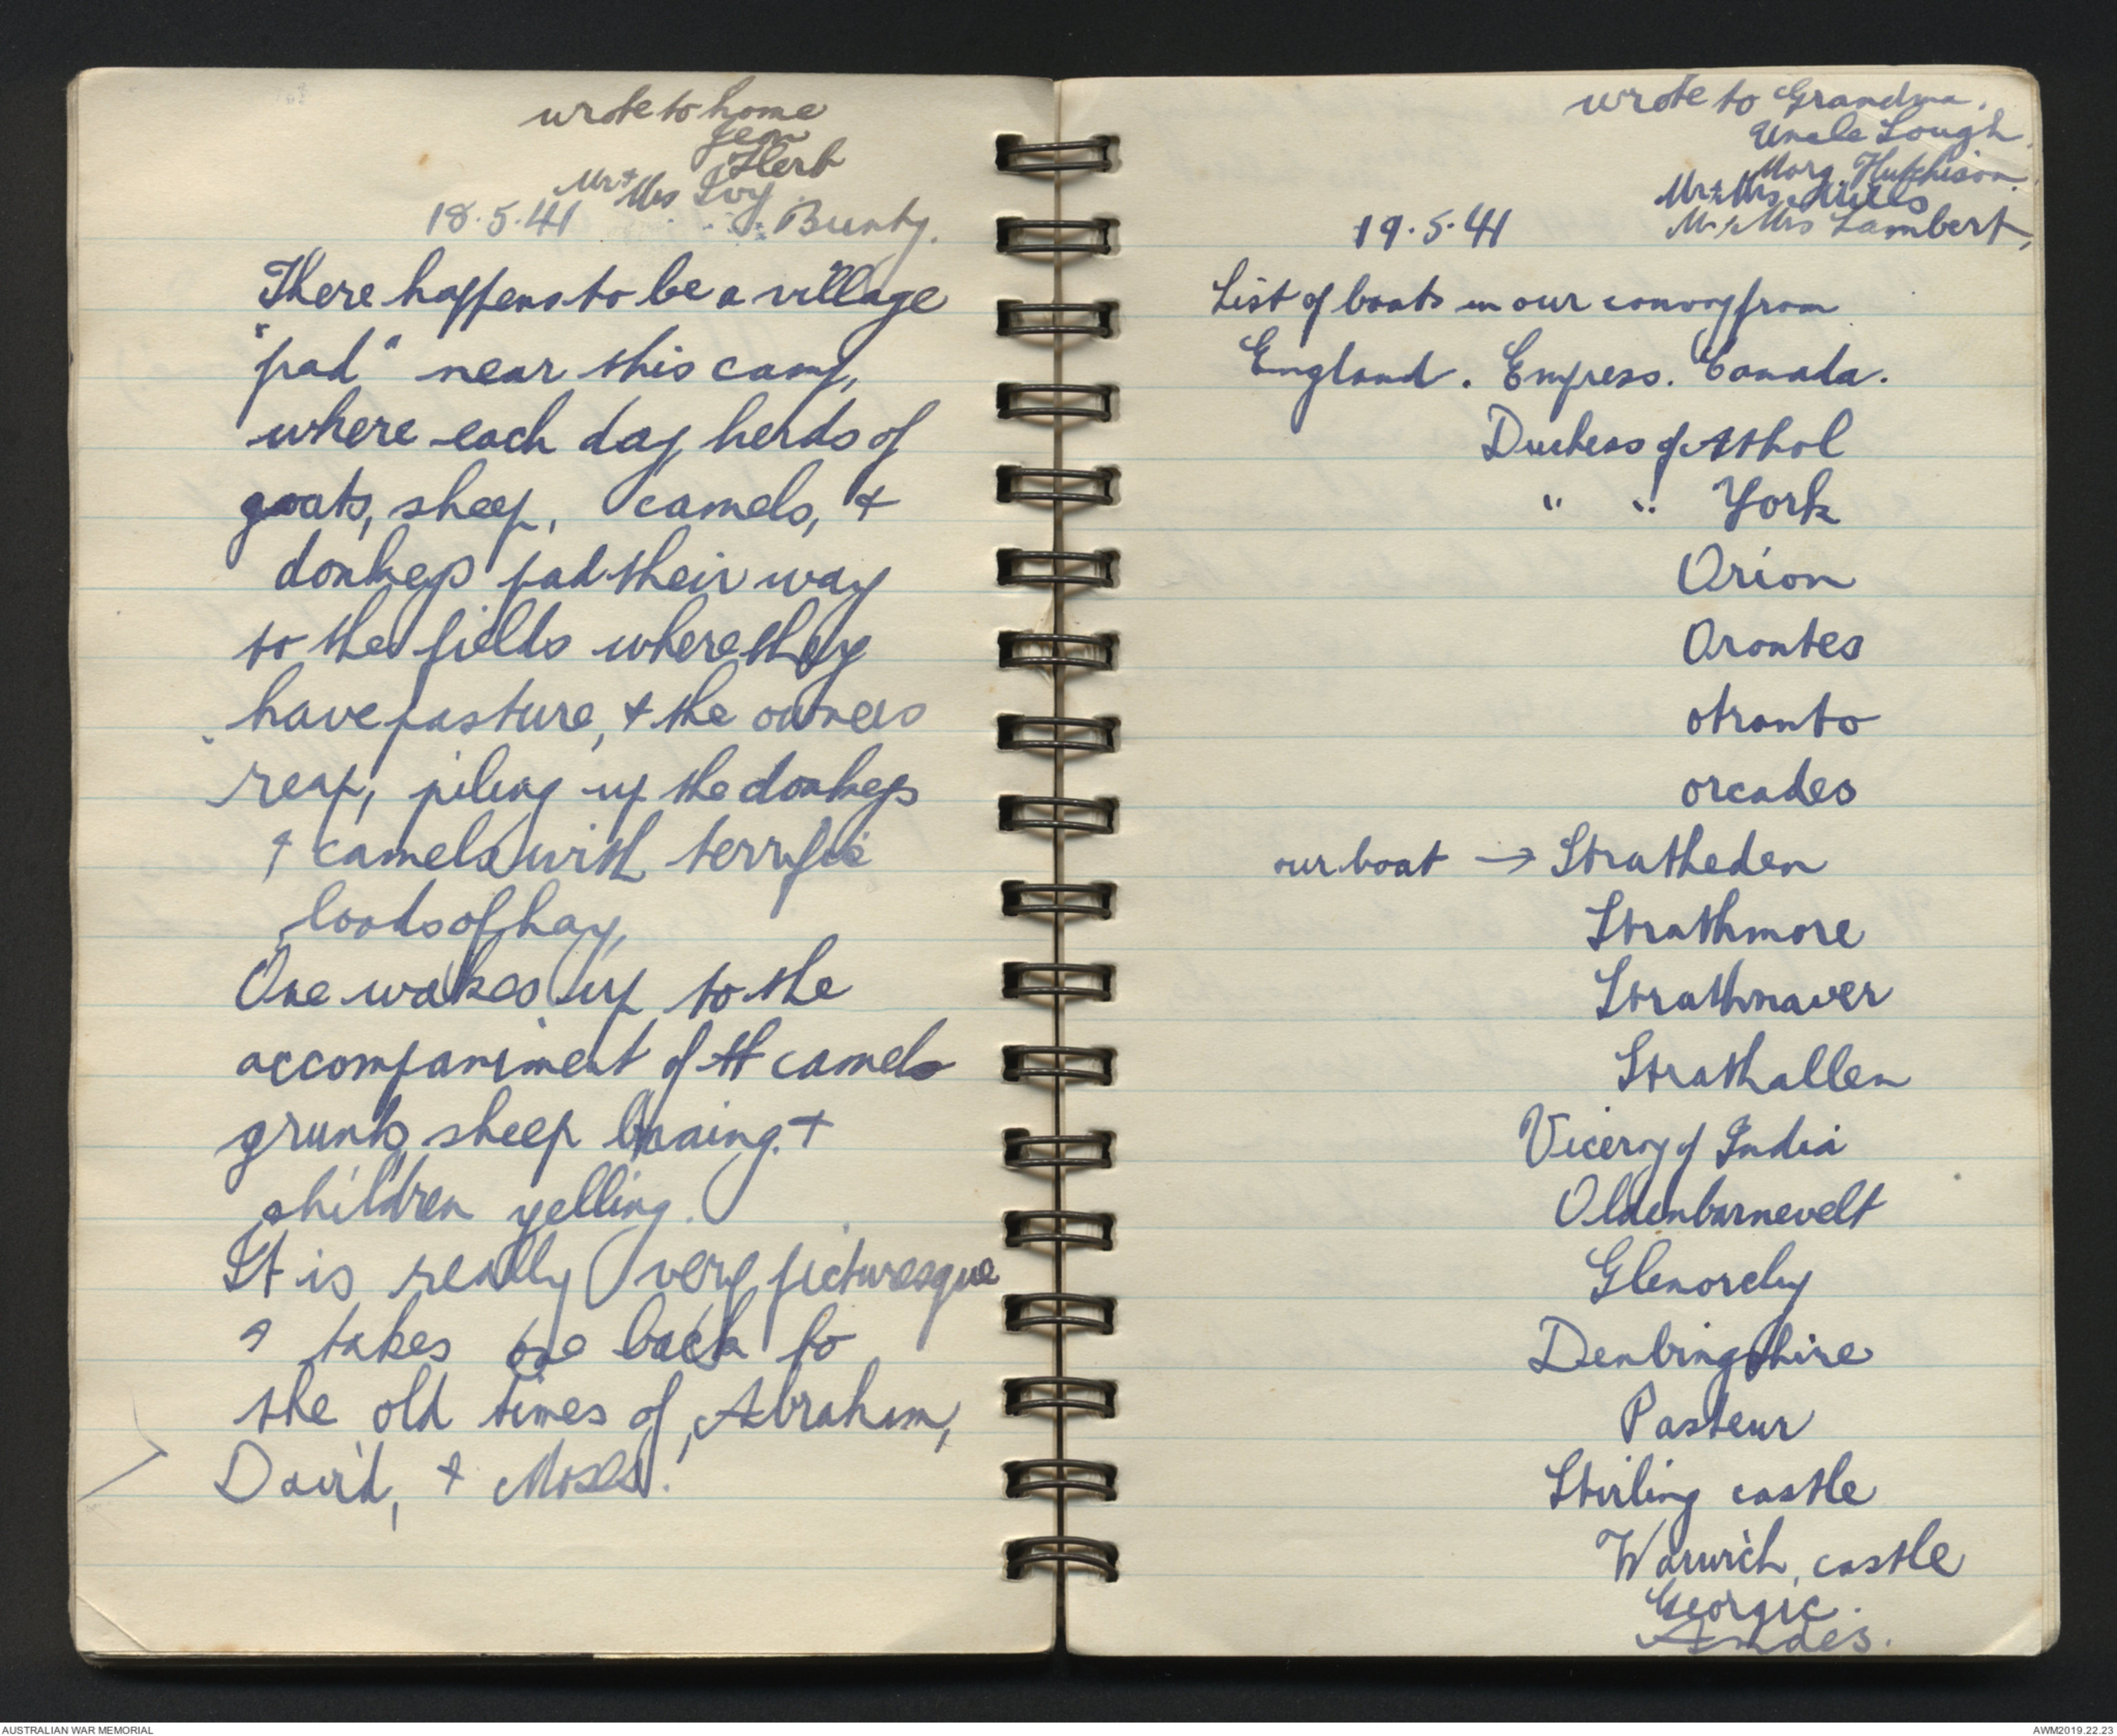 wrote to home
Jean
Herb
Mr + Mrs Ivy
18.5.41 Bunty.
There happens to be a village
"pad" near this camp,
where each day herds of
goats, sheep, camels, +
donkeys pad their way
to the fields where they
have pasture, + the owners
reap, piling up the donkeys
+ camels with terrific
loads of hay,
One wakes up to the
accompaniment of the camels
grunts, sheep baaing, +
children yelling.
It is really very picturesque
+ takes one back to
the old times of, Abraham,
David, + Moses.
wrote to Grandma.
Uncle Lough.
Marg Hutchison.
Mr + Mrs Miles
19.5.41 Mr + Mrs Lambert,
List of boats in our convoy from
England. Empress. Canada.
Duchess of Athol
" " York
Orion
Orontes
otranto
orcades
our boat → Stratheden
Strathmore
Strathnaver
Strathallen
Viceroy of India
Oldenbarnevelt
Glenorchy
Denbingshire
Pasteur
Stirling castle
Warwich, castle
Georgic.
Andes.
AUSTRALIAN WAR MEMORIAL
AWM2019.22.23